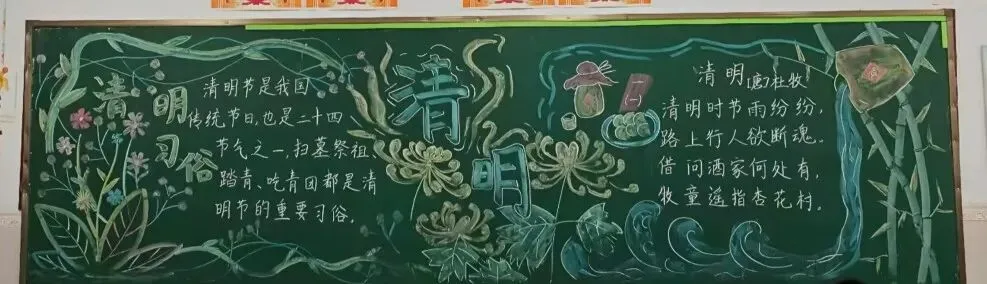 清明习俗
清明节是我国
传统节日,也是二十四
节气之一,扫墓祭祖、
踏青、吃青团都是清
明节的重要习俗。
清明
清明 (唐)杜牧
清明时节雨纷纷,
路上行人欲断魂。
借问酒家何处有,
牧童遥指杏花村。